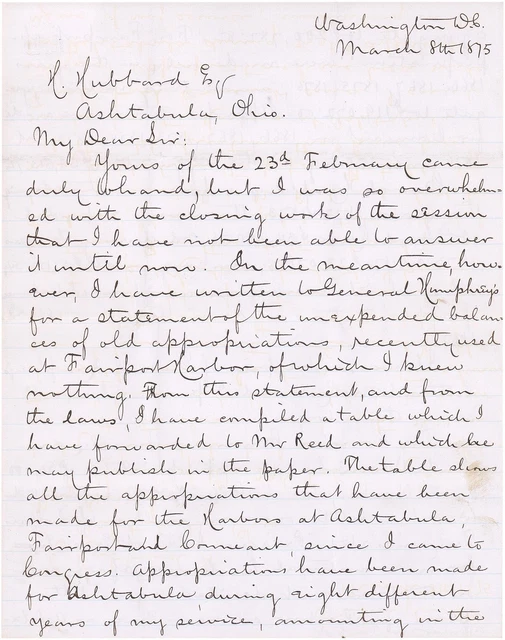 Washington D.C.
March 8th 1875
H. Hubbard Esq
Ashtabula, Ohio.
My Dear Sir:
Yours of the 23d February came
duly to hand, but I was so overwhelm-
ed with the closing work of the session
that I have not been able to answer
it until now. In the meantime, how-
ever, I have written to General Humphreys
for a statement of the unexpended balan-
ces of old appropriations, recently used
at Fairport Harbor, of which I knew
nothing. From this statement, and from
the laws, I have compiled a table which I
have forwarded to Mr Reed and which he
may publish in the paper. The table shows
all the appropriations that have been
made for the Harbors at Ashtabula,
Fairport and Conneaut, since I came to
Congress. Appropriations have been made
for Ashtabula, during eight different
years of my service, amounting in the